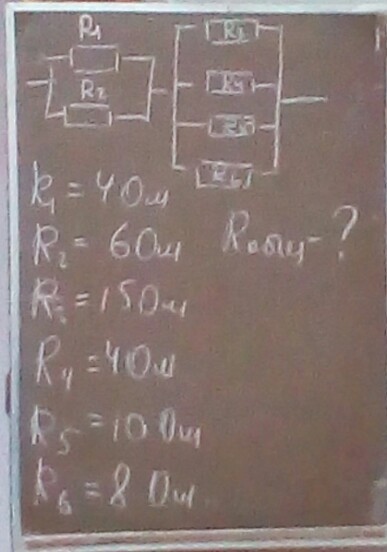 R₁
R₂
R₃
R₄
R₅
R₆
R₁ = 4 Ом
R₂ = 6 Ом Rобщ - ?
R₃ = 15 Ом
R₄ = 4 Ом
R₅ = 10 Ом
R₆ = 8 Ом